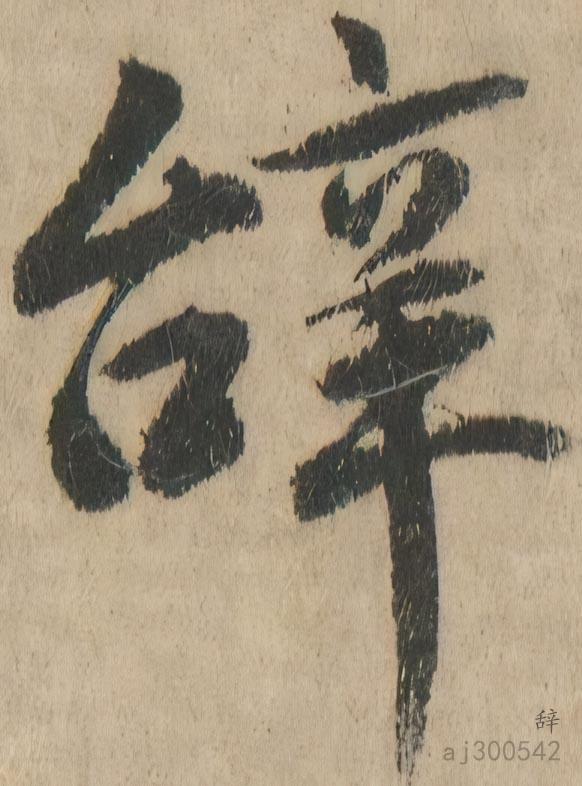 辝
辞
aj300542